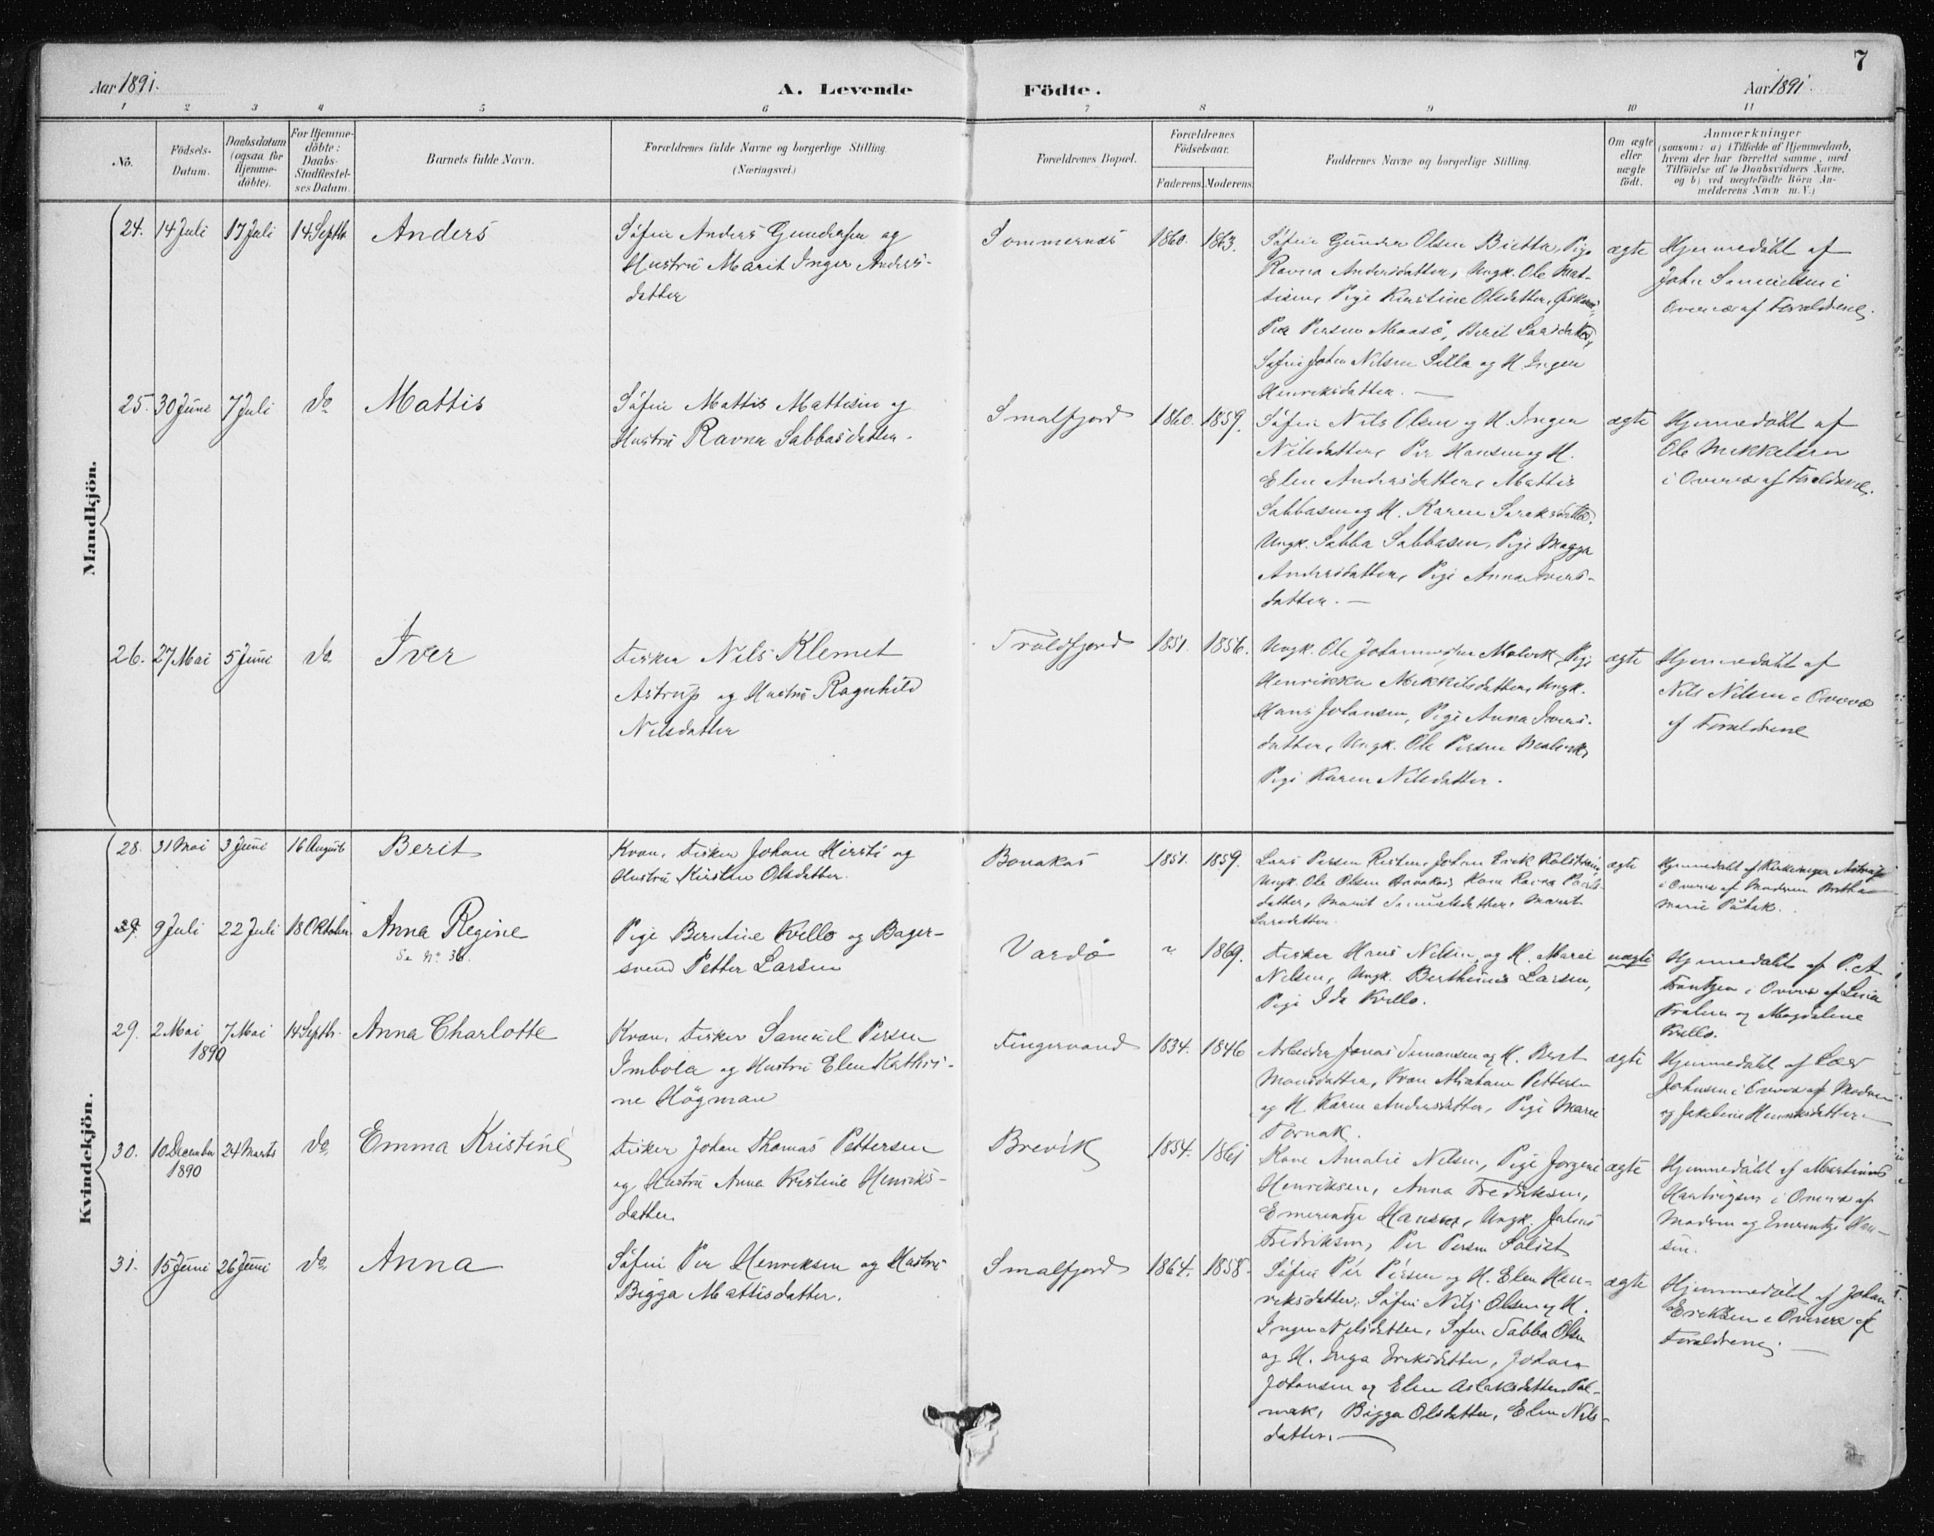 7
Aar 1891.
A. Levende Födte.
Aar 1891.
1 2 3 4 5 6 7 8 9 10 11
No.
Födsels-
Datum.
Daabsdatum
(ogsaa for
Hjemme-
döbte).
For Hjemme-
döbte:
Daabs-
Stadfæstel-
ses Datum.
Barnets fulde Navn.
Forældrenes fulde Navne og borgerlige Stilling.
(Næringsvei.)
Forældrenes Bopæl.
Forældrenes
Födselsaar.
Faderens. Moderens.
Faddernes Navne og borgerlige Stilling.
Om ægte
eller
uægte
födt.
Anmærkninger
(saasom: a) i Tilfælde af Hjemmedaab,
hvem der har forrettet samme, med
Tilföielse af to Daabsvidners Navne,
og b) ved uægtefödte Börn An-
melderens Navn m. V.)
Mandkjön.
24. 14 Juli 17 Juli 14 Septb. Anders
Søfin Anders Gundersen og
Hustru Marit Inger Anders-
datter
Sommernæs 1860. 1863.
Søfin Gunder Olsen Bietta, Pige
Ravna Andersdatter, Ungk. Ole Mat-
tisen, Pige Kirstine Olsdatter,
Per Persen Maasö, Berit Larsdatter,
Søfin Johan Nilsen Silla og H. Inger
Henriksdatter. —
ægte
Hjemmedøbt af
John Samuelsen i
Overvær af Forældrene.
25. 30 Juni 7 Juli do Mattis
Søfin Mattis Mattisen og
Hustru Ravna Sabbasdatter.
Smalfjord 1860. 1859.
Søfin Nils Olsen og H. Inger
Nilsdatter, Per Hansen og H.
Elen Andersdatter, Mattis
Sabbasen og H. Karen
Ungk. Sabba Sabbasen, Pige Magga
Andersdatter, Pige Anna Ivers-
datter. —
ægte
Hjemmedøbt af
Ole Mikkelsen
i Overvær af Forældrene.
26. 27 Mai 5 Juni do Iver
Fisker Nils Klemet
Astrup og Hustru Ragnhild
Nilsdatter
Troldfjord 1851. 1856.
Ungk. Ole Johannesen Malvik, Pige
Henrikka Mikkelsdatter, Ungk.
Hans Johansen, Pige Anna Ivers-
datter, Ungk. Ole Persen
Pige Karen Nilsdatter.
ægte
Hjemmedøbt af
Nils Nilsen i Overvær
af Forældrene
Kvindekjön.
28. 31 Mai 3 Juni 16 August Berit
Kvæn, Fisker Johan Hirsti og
Hustru Kirsten Olsdatter.
Bonakas 1851. 1859.
Lars Persen Risten, Johan Erik
Ungk. Ole Olsen Bonakas, Kone Ravna
datter, Marit Samuelsdatter, Marit
Larsdatter
ægte
Hjemmedøbt af Kirkesanger Astrup
i Overvær af Moderen Bertha
Marie
29. 9 Juli 22 Juli 18 Oktober Anna Regine
Se No 36.
Pige Berntine Kvello og Bager-
svend Petter Larsen
Vardö " 1869.
Fisker Hans Nilsen og H. Marie
Nilsen, Ungk. Berthinus Larsen,
Pige Ida Kvello.
uægte
Hjemmedøbt af P. A.
Frantzen i Overvær af
og Magdalene
Kvello.
29. 2 Mai 7 Mai 14 Septb. Anna Charlotte
1890
Kvæn, Fisker Samuel Persen
Imbola og Hustru Elen Kathri-
ne Högman
Fingervand 1834. 1846
Arbeider Jonas Simonsen og H. Berit
Monsdatter, Kvæn Abraham Pettersen
og H. Karen Andersdatter, Pige Marie
Tornak.
ægte
Hjemmedøbt af Lars
Johnsen i Overvær af Moderen
og Jakobine Henriksdatter
30. 10 December 24 Marts do Emma Kristine
1890
Fisker Johan Thomas Pettersen
og Hustru Anna Kristine Henriks-
datter.
Brevik 1854. 1861
Kone Amalie Nilsen, Pige Jorgine
Henriksen, Anna Fredriksen,
Emerentze Hansen, Ungk. Julius
Fredriksen, Per Persen
ægte
Hjemmedøbt af Martinus
Hartvigsen i Overvær af
Moderen og Emerentze Han-
sen.
31. 15 Juni 26 Juni do Anna
Søfin Per Henriksen og Hustru
Bigga Mattisdatter.
Smalfjord 1864. 1858.
Søfin Per Persen og H. Elen Hen-
riksdatter, Søfin Nils Olsen og H.
Inger Nilsdatter, Søfin Sabba Olsen
og H. Inga Eriksdatter, Johan
Johansen og Elen Aslaksdatter Pol-
mak, Bigga Olsdatter, Elen Nils-
datter. —
ægte
Hjemmedøbt af Johan
Eriksen i Overvær af
Forældrene. —